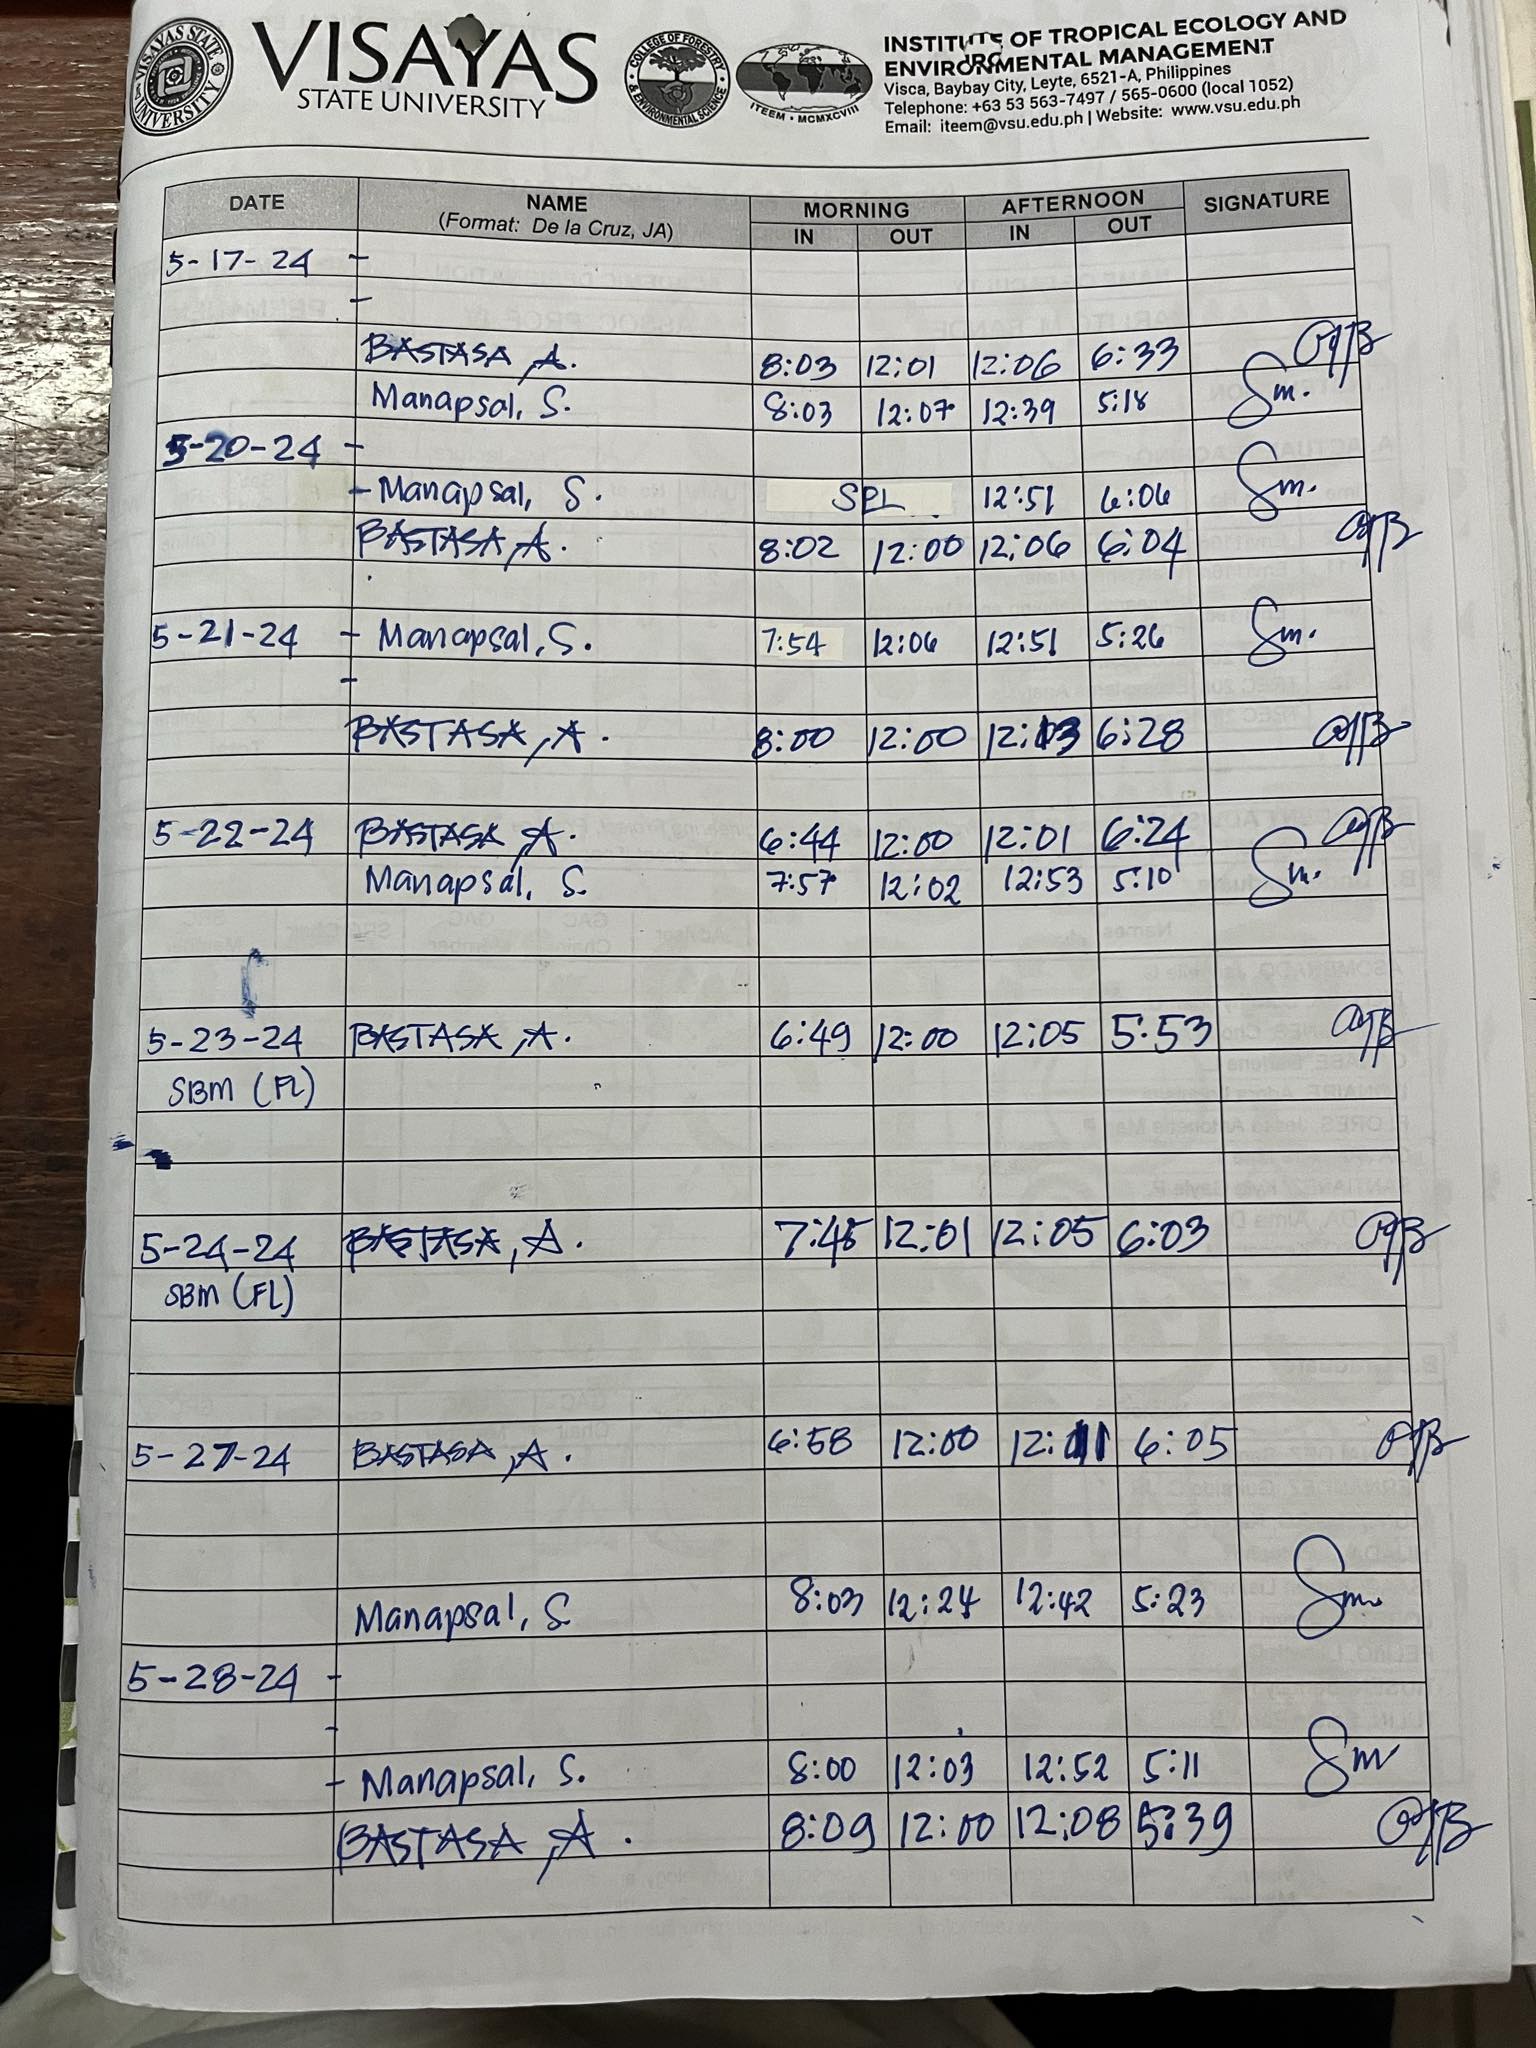 VISAYAS
STATE UNIVERSITY
VISAYAS STATE UNIVERSITY
COLLEGE OF FORESTRY & ENVIRONMENTAL SCIENCE
ITEEM • MCMXCVIII
INSTITUTE OF TROPICAL ECOLOGY AND
ENVIRONMENTAL MANAGEMENT
Visca, Baybay City, Leyte, 6521-A, Philippines
Telephone: +63 53 563-7497 / 565-0600 (local 1052)
Email: iteem@vsu.edu.ph | Website: www.vsu.edu.ph
DATE NAME MORNING AFTERNOON SIGNATURE
(Format: De la Cruz, JA) IN OUT IN OUT
5-17-24 -
-
BASTASA, A. 8:03 12:01 12:06 6:33
Manapsal, S. 8:03 12:07 12:39 5:18 Sm.
5-20-24 -
- Manapsal, S. SPL 12:51 6:06 Sm.
BASTASA, A. 8:02 12:00 12:06 6:04
5-21-24 - Manapsal, S. 7:54 12:06 12:51 5:26 Sm.
-
BASTASA, A. 8:00 12:00 12:13 6:28
5-22-24 BASTASA, A. 6:44 12:00 12:01 6:24
Manapsal, S. 7:57 12:02 12:53 5:10 Sm.
5-23-24 BASTASA, A. 6:49 12:00 12:05 5:53
SBM (FL)
5-24-24 BASTASA, A. 7:45 12:01 12:05 6:03
SBM (FL)
5-27-24 BASTASA, A. 6:58 12:00 12:11 6:05
Manapsal, S 8:03 12:24 12:42 5:23 Sm.
5-28-24 -
-
- Manapsal, S. 8:00 12:03 12:52 5:11 Sm
BASTASA, A. 8:09 12:00 12:08 5:39